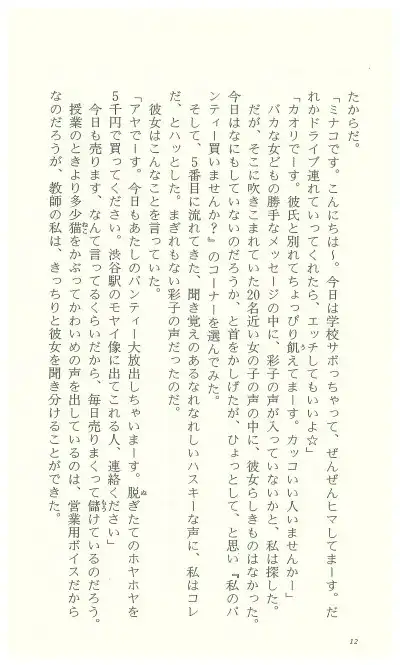 たからだ。
「ミナコです。こんにちは～。今日は学校サボっちゃって、ぜんぜんヒマしてまーす。だ
れかドライブ連れていってくれたら、エッチしてもいいよ☆」
「カオリでーす。彼氏と別れてちょっぴり飢えてまーす。カッコいい人いませんかー」
バカな女どもの勝手なメッセージの中に、彩子の声が入っていないかと、私は探した。
だが、そこに吹きこまれていた20名近い女の子の声の中に、彼女らしきものはなかった。
今日はなにもしていないのだろうか、と首をかしげたが、ひょっとして、と思い『私のパ
ンティー買いませんか？』のコーナーを選んでみた。
そして、5番目に流れてきた、聞き覚えのあるなれなれしいハスキーな声に、私はコレ
だ、とハッとした。まぎれもない彩子の声だったのだ。
彼女はこんなことを言っていた。
「アヤでーす。今日もあたしのパンティー大放出しちゃいまーす。脱ぎたてのホヤホヤを
5千円で買ってください。渋谷駅のモヤイ像に出てこれる人、連絡ください」
今日も売ります、なんて言ってるくらいだから、毎日売りまくって儲けているのだろう。
授業のときより多少猫をかぶってかわいめの声を出しているのは、営業用ボイスだから
なのだろうが、教師の私は、きっちりと彼女を聞き分けることができた。
12